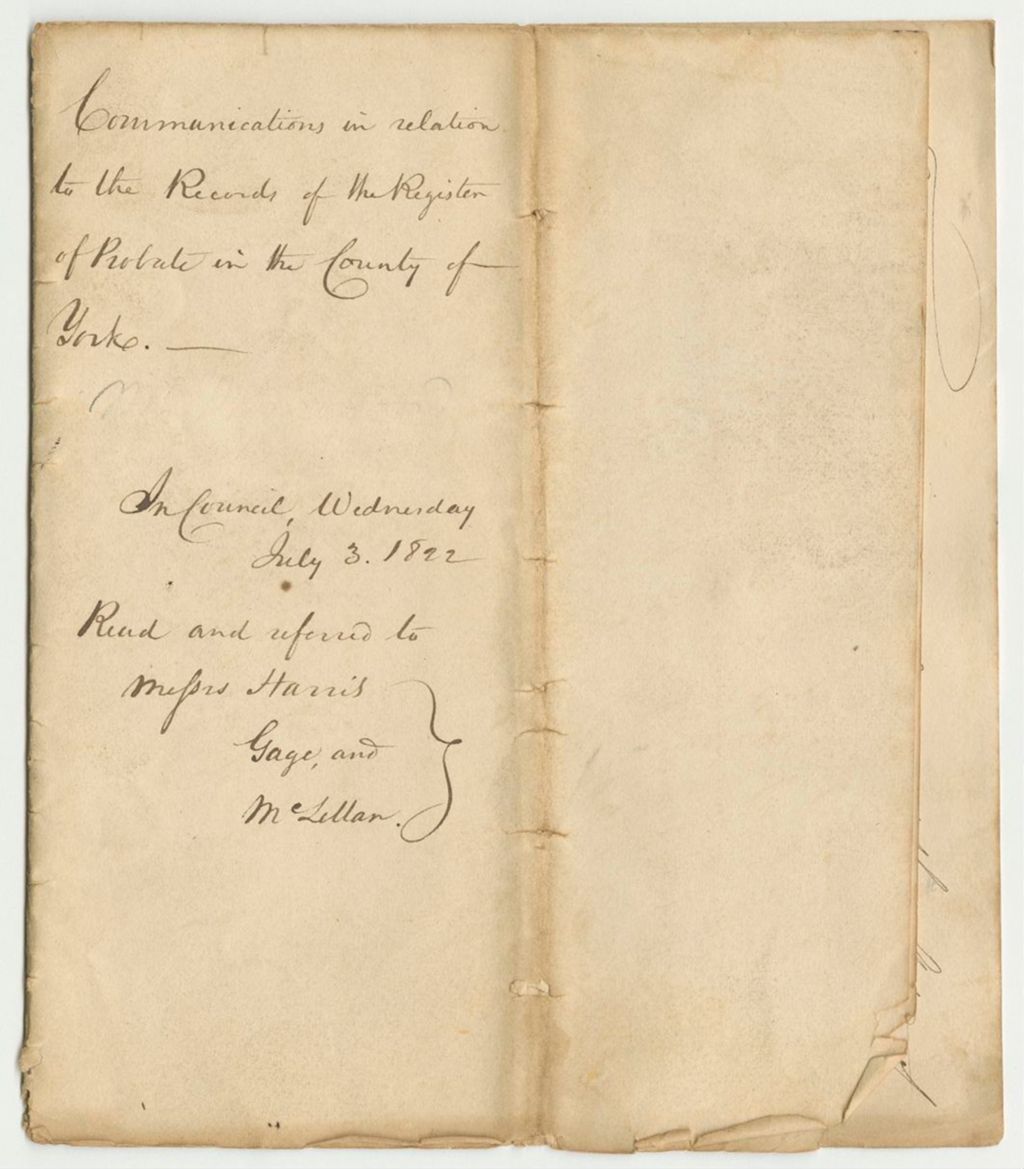 Communications in relation
to the Records of the Register
of Probate in the County of
York. —
In Council, Wednesday
July 3. 1822
Read and referred to
Messrs Harris
Gage, and
McLellan.